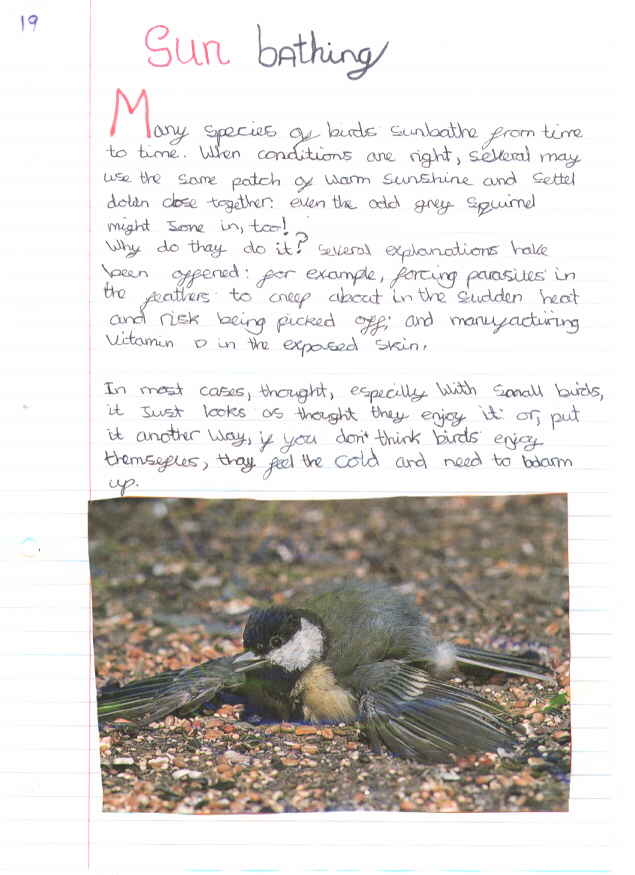 19
Sun bathing
Many species of birds sunbathe from time
to time. When conditions are right, several may
use the same patch of warm sunshine and settel
down close together. even the odd grey squirrel
might Jone in, too!
Why do thay do it? several explanations have
been offened: for example, forcing parasites in
the feathers to creep about in the sudden heat
and risk being picked off; and manufacturing
Vitamin D in the exposed skin.
In most cases, thought, especilly With small birds,
it Just looks as thought they enjoy it: or, put
it another way, if you don't think birds enjoy
themselves, thay feel the cold and need to warm
up.